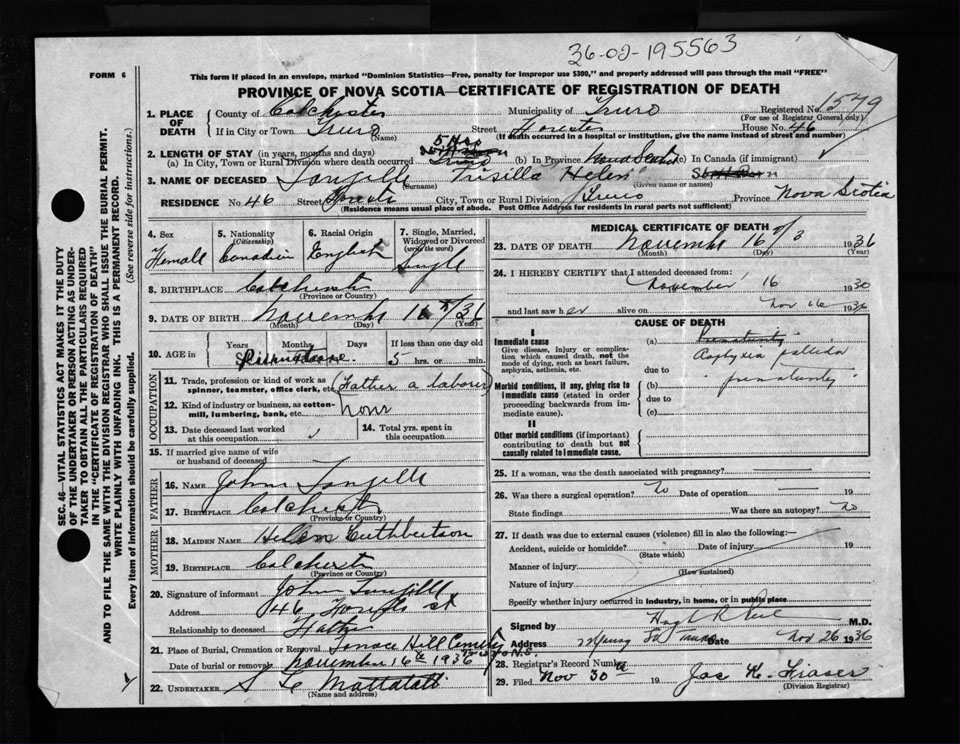 36-02-195563
FORM 6
This form if placed in an envelope, marked "Dominion Statistics—Free, penalty for improper use $300," and properly addressed will pass through the mail "FREE"
PROVINCE OF NOVA SCOTIA—CERTIFICATE OF REGISTRATION OF DEATH
SEC. 46—VITAL STATISTICS ACT MAKES IT THE DUTY
OF THE UNDERTAKER OR PERSON ACTING AS UNDER-
TAKER TO OBTAIN ALL THE PARTICULARS REQUIRED
IN THE "CERTIFICATE OF REGISTRATION OF DEATH"
AND TO FILE THE SAME WITH THE DIVISION REGISTRAR WHO SHALL ISSUE THE BURIAL PERMIT.
WRITE PLAINLY WITH UNFADING INK. THIS IS A PERMANENT RECORD.
Every item of information should be carefully supplied. (See reverse side for instructions.)
1. PLACE OF DEATH County of Colchester Municipality of Truro Registered No. 1579
(For use of Registrar General only)
If in City or Town Truro Street House No. 46
(Name) (If death occurred in a hospital or institution, give the name instead of street and number)
2. LENGTH OF STAY (in years, months and days) 5 Hrs
(a) In City, Town or Rural Division where death occurred Truro (b) In Province Nova Scotia (c) In Canada (if immigrant)
3. NAME OF DECEASED Langille Prisilla Helen
(Surname) (Given name or names)
RESIDENCE No. 46 Street City, Town or Rural Division Truro Province Nova Scotia
(Residence means usual place of abode. Post Office Address for residents in rural parts not sufficient)
4. Sex Female
5. Nationality (Citizenship) Canadian
6. Racial Origin English
7. Single, Married, Widowed or Divorced (write the word) Single
8. BIRTHPLACE Colchester
(Province or Country)
9. DATE OF BIRTH November 16 /36
(Month) (Day) (Year)
10. AGE in Years Months Days If less than one day old
5 hrs. or min.
OCCUPATION
11. Trade, profession or kind of work as spinner, teamster, office clerk, etc. (Father a laborer)
12. Kind of industry or business, as cotton-mill, lumbering, bank, etc. none
13. Date deceased last worked at this occupation
14. Total yrs. spent in this occupation
15. If married give name of wife or husband of deceased
FATHER
16. Name John Langille
17. Birthplace Colchester
(Province or Country)
MOTHER
18. Maiden Name Helen Cuthbertson
19. Birthplace Colchester
(Province or Country)
20. Signature of informant John Langille
Address 46 St
Relationship to deceased Father
21. Place of Burial, Cremation or Removal Terrace Hill Cemetery Truro N.S.
Date of burial or removal November 16th 1936
22. UNDERTAKER S C Mattatall
(Name and address)
MEDICAL CERTIFICATE OF DEATH
23. DATE OF DEATH November 16 1936
(Month) (Day) (Year)
24. I HEREBY CERTIFY that I attended deceased from:
November 16 1930
and last saw her alive on Nov 16 1936
CAUSE OF DEATH
I
Immediate cause
Give disease, injury or complication which caused death, not the mode of dying, such as heart failure, asphyxia, asthenia, etc.
(a) Prematurity
Asphyxia pallida
due to
Morbid conditions, if any, giving rise to immediate cause (stated in order proceeding backwards from immediate cause).
(b) prematurity
due to
(c)
II
Other morbid conditions (if important) contributing to death but not causally related to immediate cause.
25. If a woman, was the death associated with pregnancy?
26. Was there a surgical operation? No Date of operation 19
State findings Was there an autopsy? No
27. If death was due to external causes (violence) fill in also the following:—
Accident, suicide or homicide? Date of injury 19
(State which)
Manner of injury
(How sustained)
Nature of injury
Specify whether injury occurred in industry, in home, or in public place
Signed by M.D.
Address Date Nov 26 1936
28. Registrar's Record Number
29. Filed Nov 30th 19 Jas K. Fraser
(Division Registrar)